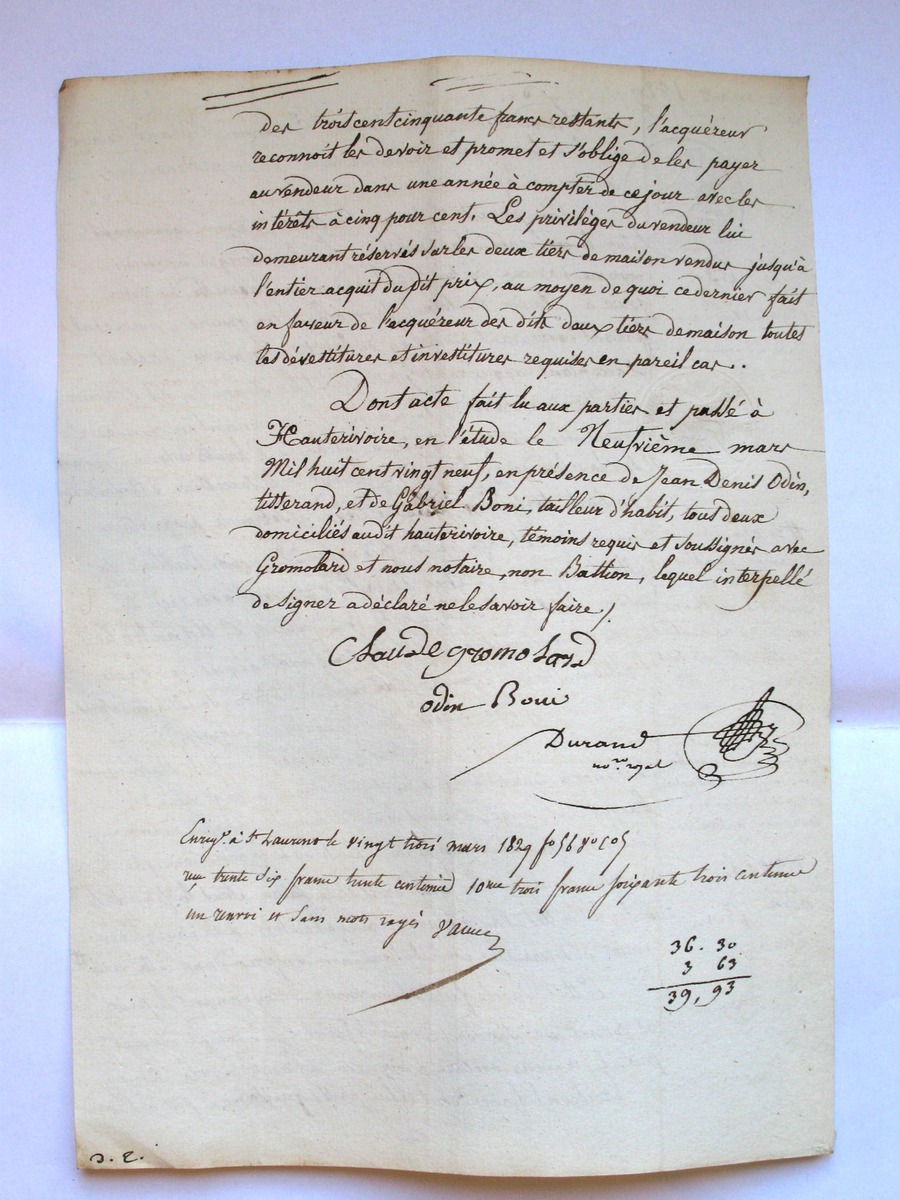 des trois cent cinquante francs restants, l'acquéreur
reconnoit les devoir et promet et s'oblige de les payer
au vendeur dans une année à compter de ce jour avec les
intérêts à cinq pour cent. Les privilèges du vendeur lui
demeurant réservés sur les deux tiers de maison vendus jusqu'à
l'entier acquit du dit prix, au moyen de quoi ce dernier fait
en faveur de l'acquéreur des dits deux tiers de maison toutes
les dévestitures et investitures requises en pareil cas..
Dont acte fait lu aux parties et passé à
Hauterivoire, en l'étude le Neufvième mars
Mil huit cent vingt neuf, en présence de Jean Denis Odin,
tisserand, et de Gabriel Boni, tailleur d'habit, tous deux
domiciliés audit hauterivoire, témoins requis et soussignés avec
Gromolard et nous notaire, non Battion, lequel interpellé
de signer a déclaré ne le savoir faire /.
Claude gromolard
odin Boni
Durand
no.re royal
Enreg.é à St Laurent le vingt trois mars 1829 fo 56 Vo C 5
reçu trente six francs trente centimes 10me trois francs soixante trois centimes
un renvoi et sans mots rayés
36. 30
3 63
39, 93
D. E.